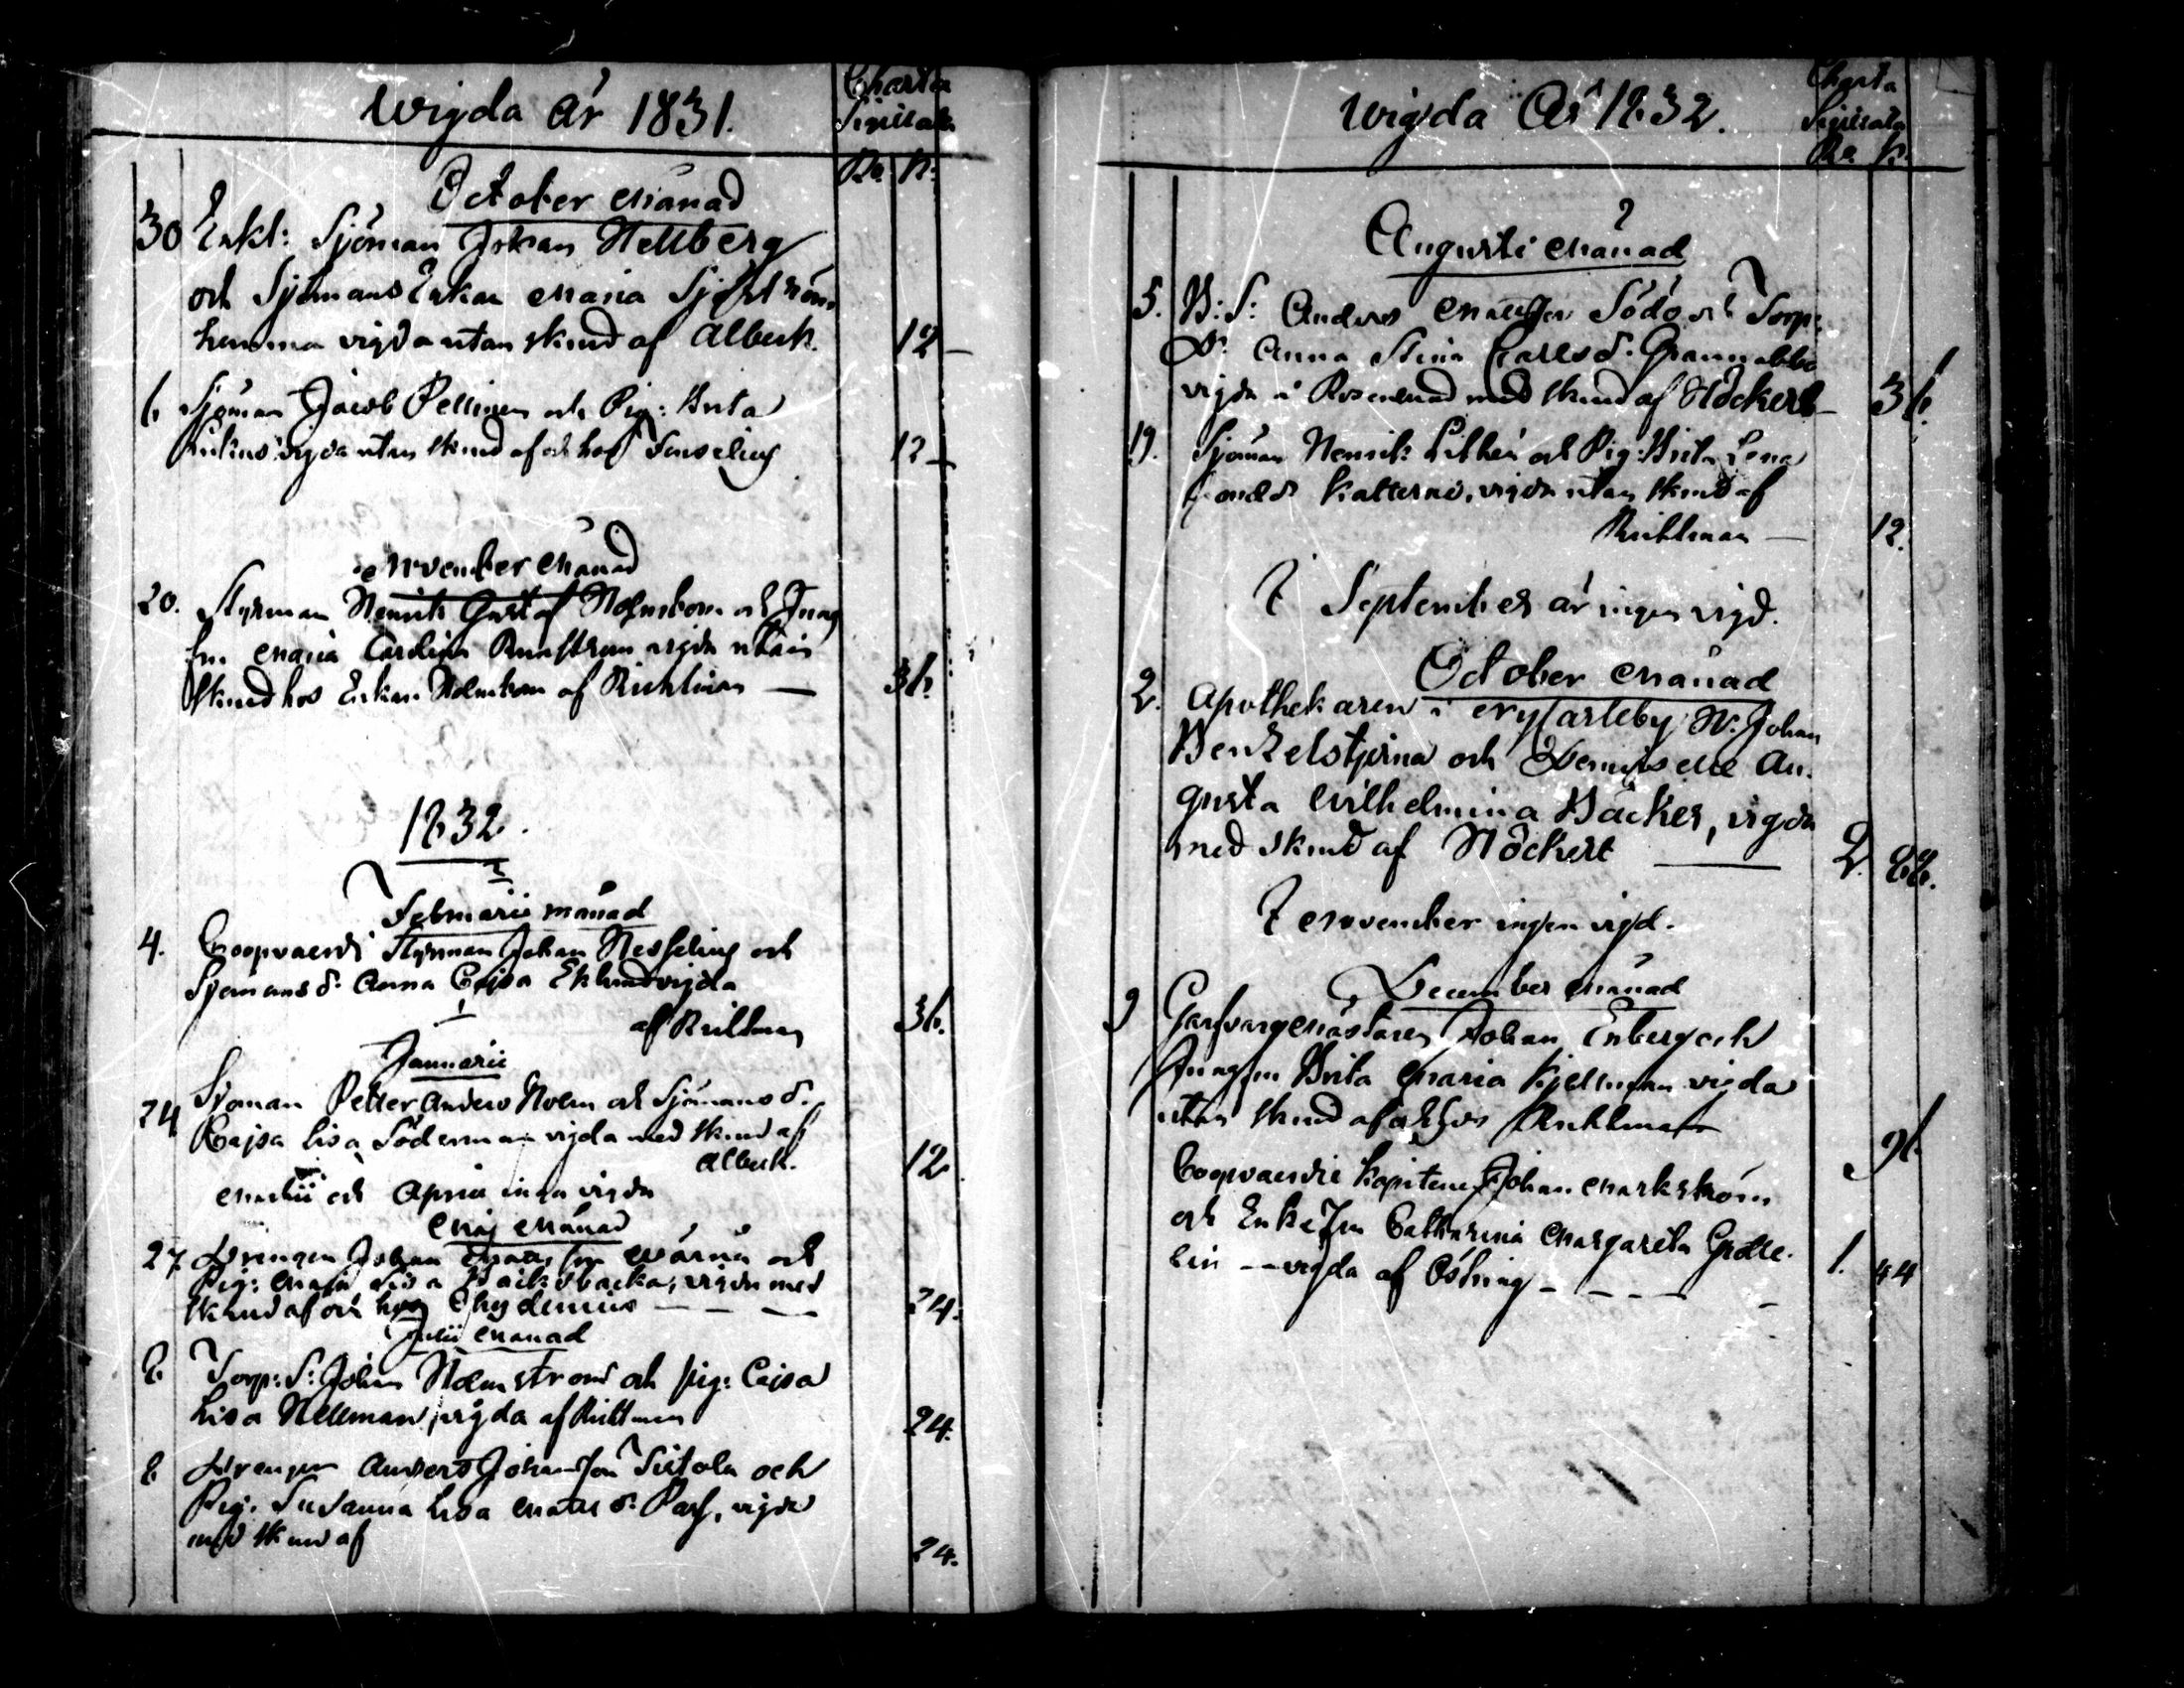 Wigda år 1831.
Charta
Sigillata
Ro. k.
October Månad
30 Enkl: Sjöman Johan Hellberg
och Sjömans Enkan Maria Sjöström
hemma vigda utan skiud af Albeck. 12
6 Sjöman Jacob Pellinen och Pig: Brita
vigda utan skiud af och hos Tenseling 12
November Månad
20. Styrman Henrik Gustaf Holmbom och Jung
fru Maria Carolina vigda utan
skiud hos Enkan Holmbom af Richlman — 36.
1832.
Februarii månad
4. Coopvaerdi Styrman Johan Hesseling och
Sjömans d. Anna Cajsa Eklund vigda
af Richlman 36.
Januarii
24 Sjöman Petter Anders Holm och Sjömans d.
Cajsa Lisa Söderman vigda med skiud af
Albeck. 12
Martii och April inga vigda
Maj Månad
27 Drengen Johan Matts son Wärnä och
Pig: Maja Lisa Backsbacka, vigda med
skiud af och hos Chydenius — — — 24.
Julii Månad
8 Torp: S: Johan Holmström och pig: Cajsa
Lisa Hellman, vigda af Richlman 24.
8 Drengen Anders Johansson Sirtola och
Pig. Susanna Lisa Matts d. vigda
med skiud af 24.
Wigda År 1832.
Charta
Sigillata
Ro. k.
Augusti Månad
5. B: S: Anders Mattsson Södö och Torp:
D: Anna Stina Carlsd. Grannabba
vigda i Rosenlund med skiud af Höckert — 36.
19. Sjöman Henrik Lithén och Pig: Brita Lena
Katternö, vigda utan skiud af
Richlman — 12.
I September är ingen vigd.
October Månad
2. Apothekaren i Nycarleby Hr. Johan
Benzelstjerna och Demoiselle Au-
gusta Wilhelmina Bäcker, vigda
med skiud af Höckert — 2. 88.
I November ingen vigd.
December Månad
9 Garfvaremästaren Johan Enberg och
Jungfru Brita Maria Kjellman vigda
utan skiud af och hos Richlman 96.
Coopvaerdie Kapitenen Johan Markström
och Enkefru Catharina Margareta Grelle-
lin — vigda af Östring — — — 1. 44